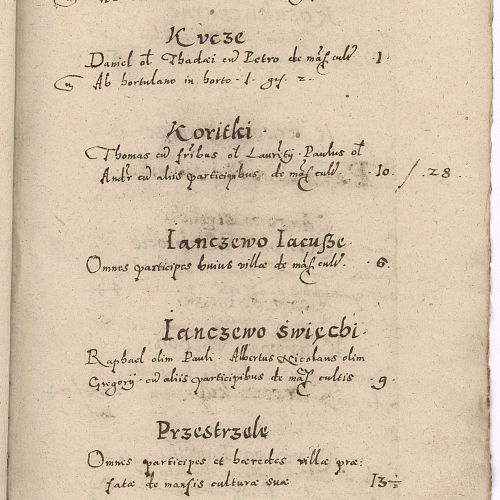 Kucze
Daniel ol Thadæi cu Petro de mās cult · 1 ·
Ab hortulano in horto · 1 · gs 2 ·
Koritki ·
Thomas cu frībus ol Laurētÿ · Paulus ol
Andr cu aliis participibus · de mās cult · 10 / · 28 ·
Ianczewo Iacusze ·
Omnes participes huius villæ de mās cult · 6 ·
Ianczewo święchi ·
Raphael olim Pauli · Albertus Nicolaus olim
Gregorÿ · cu aliis participibus de mās cultis · 9 ·
Przestrzele
Omnes participes et hæredes villæ præ:
fatæ de mansis culturæ suæ 13½